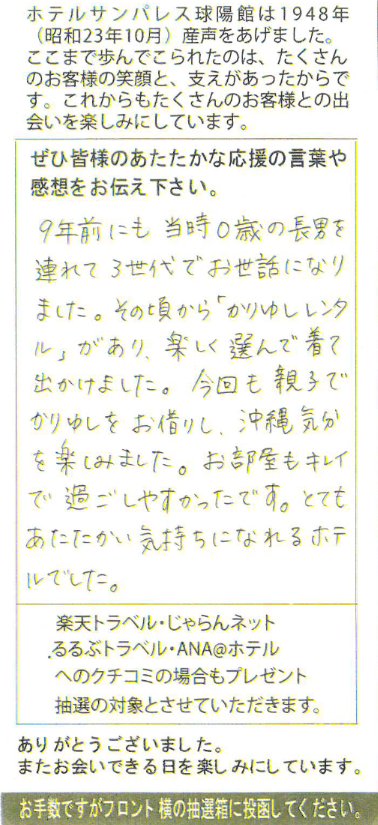 ホテルサンパレス球陽館は1948年
（昭和23年10月）産声をあげました。
ここまで歩んでこられたのは、たくさん
のお客様の笑顔と、支えがあったからで
す。これからもたくさんのお客様との出
会いを楽しみにしています。
ぜひ皆様のあたたかな応援の言葉や
感想をお伝え下さい。
9年前にも 当時0歳の長男を
連れて 3世代でお世話になり
ました。その頃から「かりゆしレンタ
ル」があり、楽しく選んで着て
出かけました。今回も親子で
かりゆしをお借りし、沖縄気分
を楽しみました。お部屋もキレイ
で過ごしやすかったです。とても
あたたかい気持ちになれるホテ
ルでした。
楽天トラベル・じゃらんネット
るるぶトラベル・ANA@ホテル
へのクチコミの場合もプレゼント
抽選の対象とさせていただきます。
ありがとうございました。
またお会いできる日を楽しみにしています。
お手数ですがフロント横の抽選箱に投函してください。